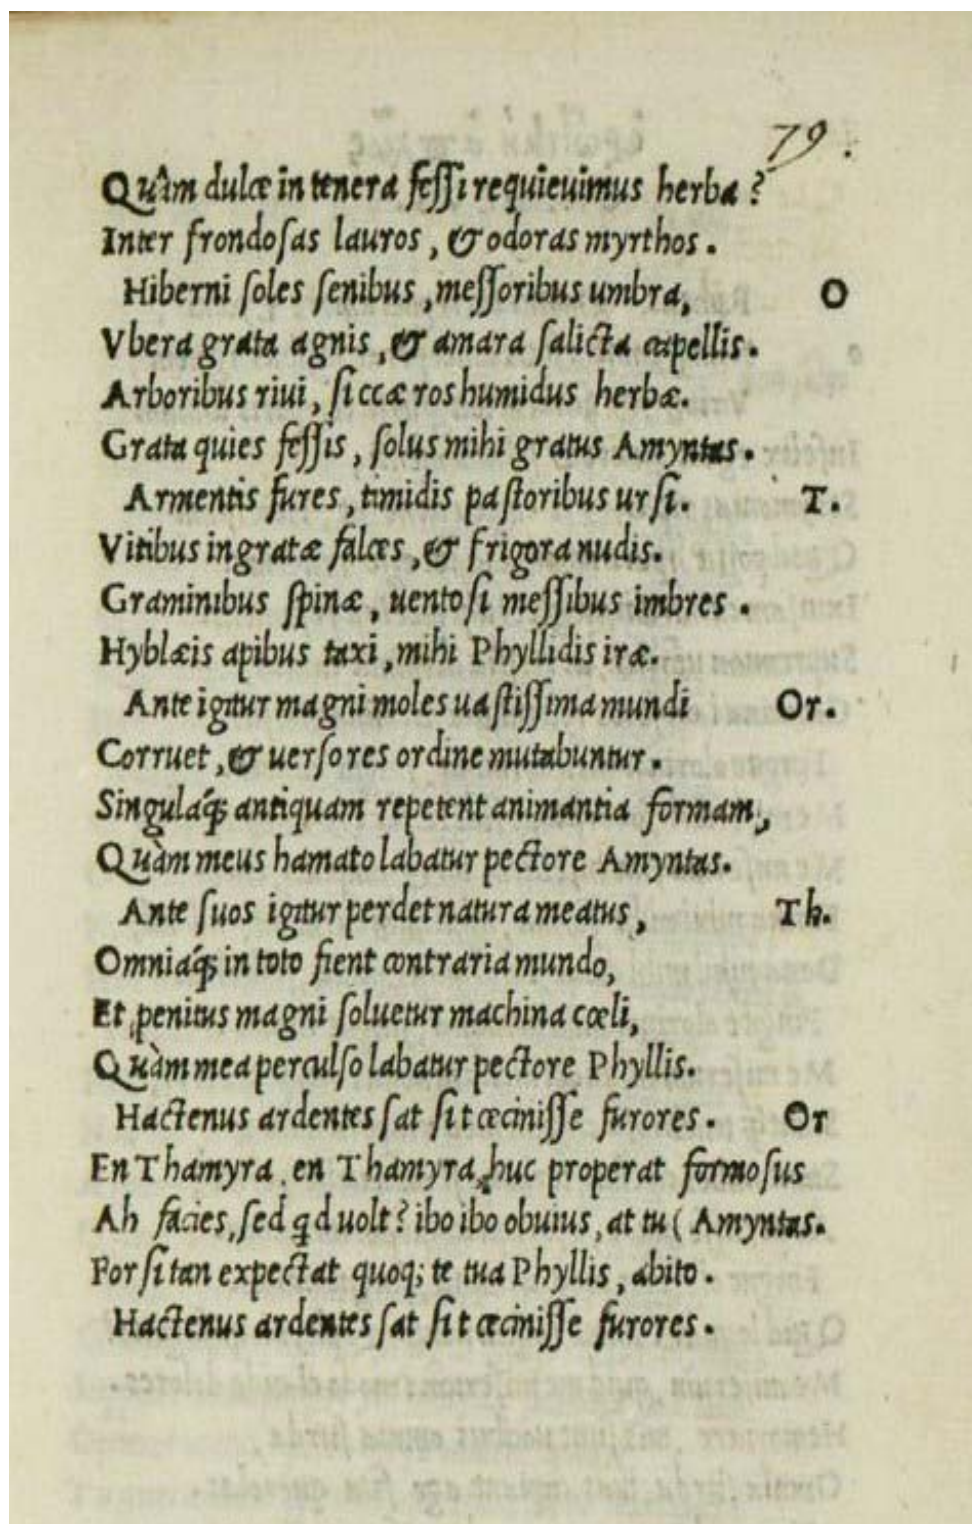 79.
Quàm dulce in tenera feſſi requieuimus herba?
Inter frondoſas lauros, & odoras myrthos.
Hiberni ſoles ſenibus, meſſoribus umbra, O
Vbera grata agnis, & amara ſalicta capellis.
Arboribus riui, ſiccæ ros humidus herbæ.
Grata quies feſſis, ſolus mihi gratus Amyntas.
Armentis fures, timidis paſtoribus urſi. T.
Vitibus ingratæ falces, & frigora nudis.
Graminibus ſpinæ, uentoſi meſſibus imbres.
Hyblæis apibus taxi, mihi Phyllidis iræ.
Ante igitur magni moles uaſtiſſima mundi Or.
Corruet, & uerſo res ordine mutabuntur.
Singulaq́; antiquam repetent animantia formam,
Quàm meus hamato labatur pectore Amyntas.
Ante ſuos igitur perdet natura meatus, Th.
Omniaq́; in toto fient contraria mundo,
Et penitus magni ſoluetur machina cœli,
Quàm mea perculſo labatur pectore Phyllis.
Hactenus ardentes ſat ſit ceciniſſe furores. Or
En Thamyra, en Thamyra, huc properat formoſus
Ah facies, ſed qd uolt? ibo ibo obuius, at tu (Amyntas.
Forſitan expectat quoq; te tua Phyllis, abito.
Hactenus ardentes ſat ſit ceciniſſe furores.